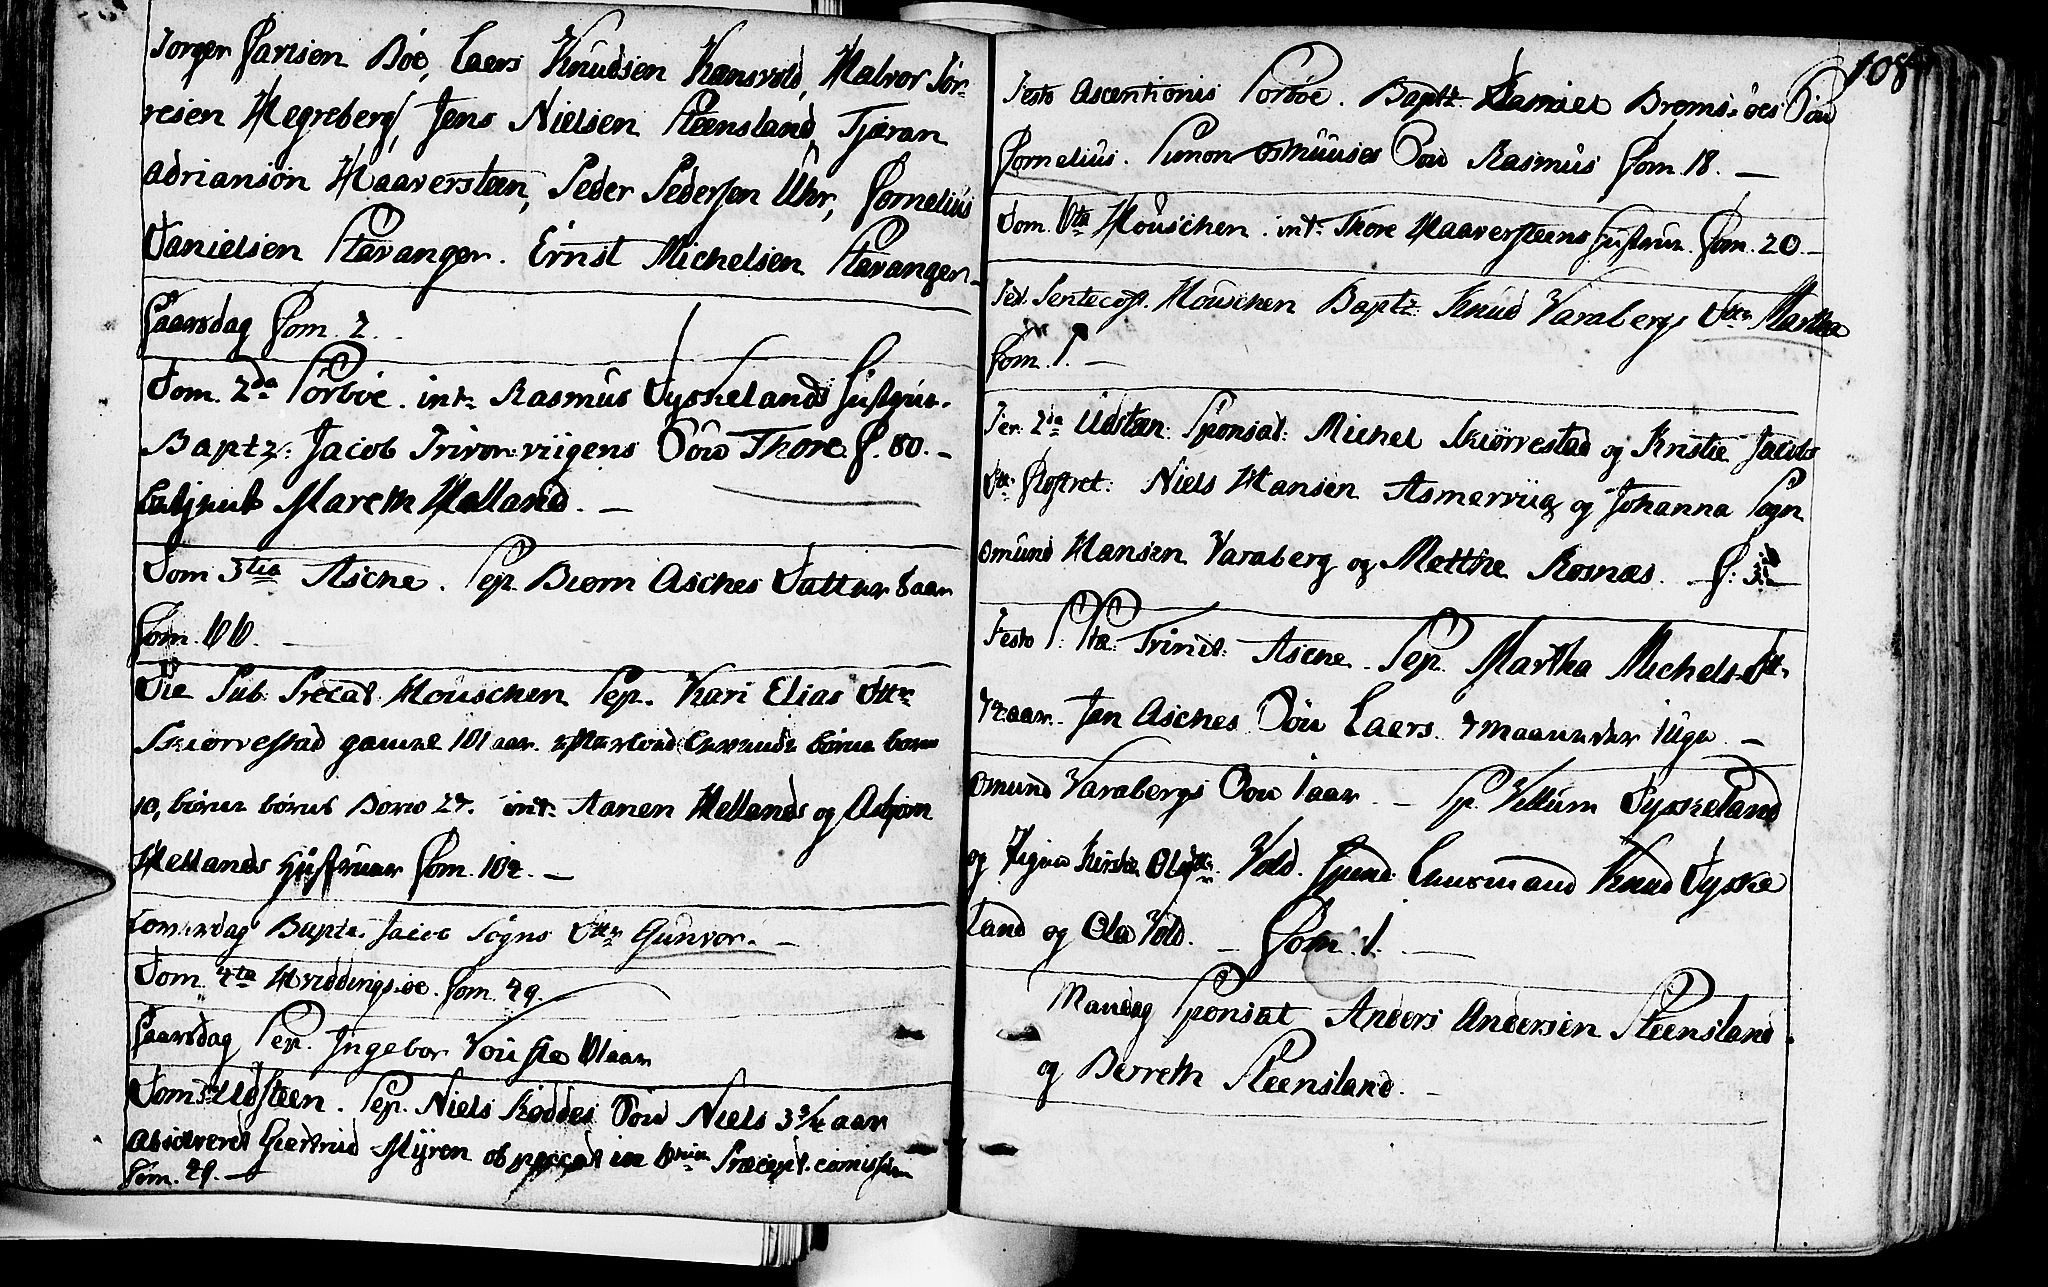 Torger Larsen Böe, Laers Knudsen Hansvold, Halvor Tor-
resen Hegreberg, Jens Nielsen Steensland, Tjæran
Adrianson Haaversteen, Peder Pedersen Uhr, Cornelius
Danielsen Stavanger. Ernst Michelsen Stavanger.
Faarsdag Com. 2.
Dom. 2da Sörböe. int. Rasmus Tyskelands Hustrue.
Baptz. Jacob Söu Thore C. 80. –
Mareth Helland. –
Dom 3tia Asche. Sep. Biørn Asches Datter 8 aar
Com. 66.
Die Sub. Precat. Houschen Sep. Kari Elias Dttr
Skiørrestad gammel 101 aar.
10, börne börns Börn 24. int. Aanen Hellands og Asbiörn
Hellands Hustruer Com. 104. –
Lowerdag Bapt. Jacob Sogns Dttr Gunvor. –
Dom. 4ta Hviddingsøe. Com. 49.
Faarsdag Sep. Ingebor Voufle 61 aar
Dom. Udsteen. Sep. Niels Koddes Söu Niels 3 3/4 aar
absolveret Giertrud Myren ob peccat in Præcept. comissum
Com. 29. –
108
Festo Ascentionis Sörböe. Baptz Daniel Bremsöes Söu
Cornelius. Simon Osmunses Söu Rasmus Com. 18. –
Dom. 6ta Houschen. int. Thore Haaversteens Hustrue. Com. 20. –
Fest. Pentecost. Houschen Baptz. Knud Varabergs Dttr Martha
Com. 1. –
Fer. 2da Udsteen. Sponsal: Michel Skiørrestad og Kristie Jacobs
Dtt. Niels Hansen Asmervüg og Johanna Sogn
Omund Hansen Varaberg og Metthe Rosnæs. C: 3
Festo S. Stæ. Trinit. Asche. Sep. Martha Michels Dtt.
74 aar. Jan Asches Söu Laers. 7 maaneder 1 Uge –
Omund Varabergs Söu 1 aar. – Sp. Villum Tyskeland
og Pigen Kirstie Olsdtr. Vold. Laursmand Knud Tyske
land og Ola Vold. – Com. 1. –
Mandag Sponsat Anders Andersen Steensland.
og Berreth Steensland. –